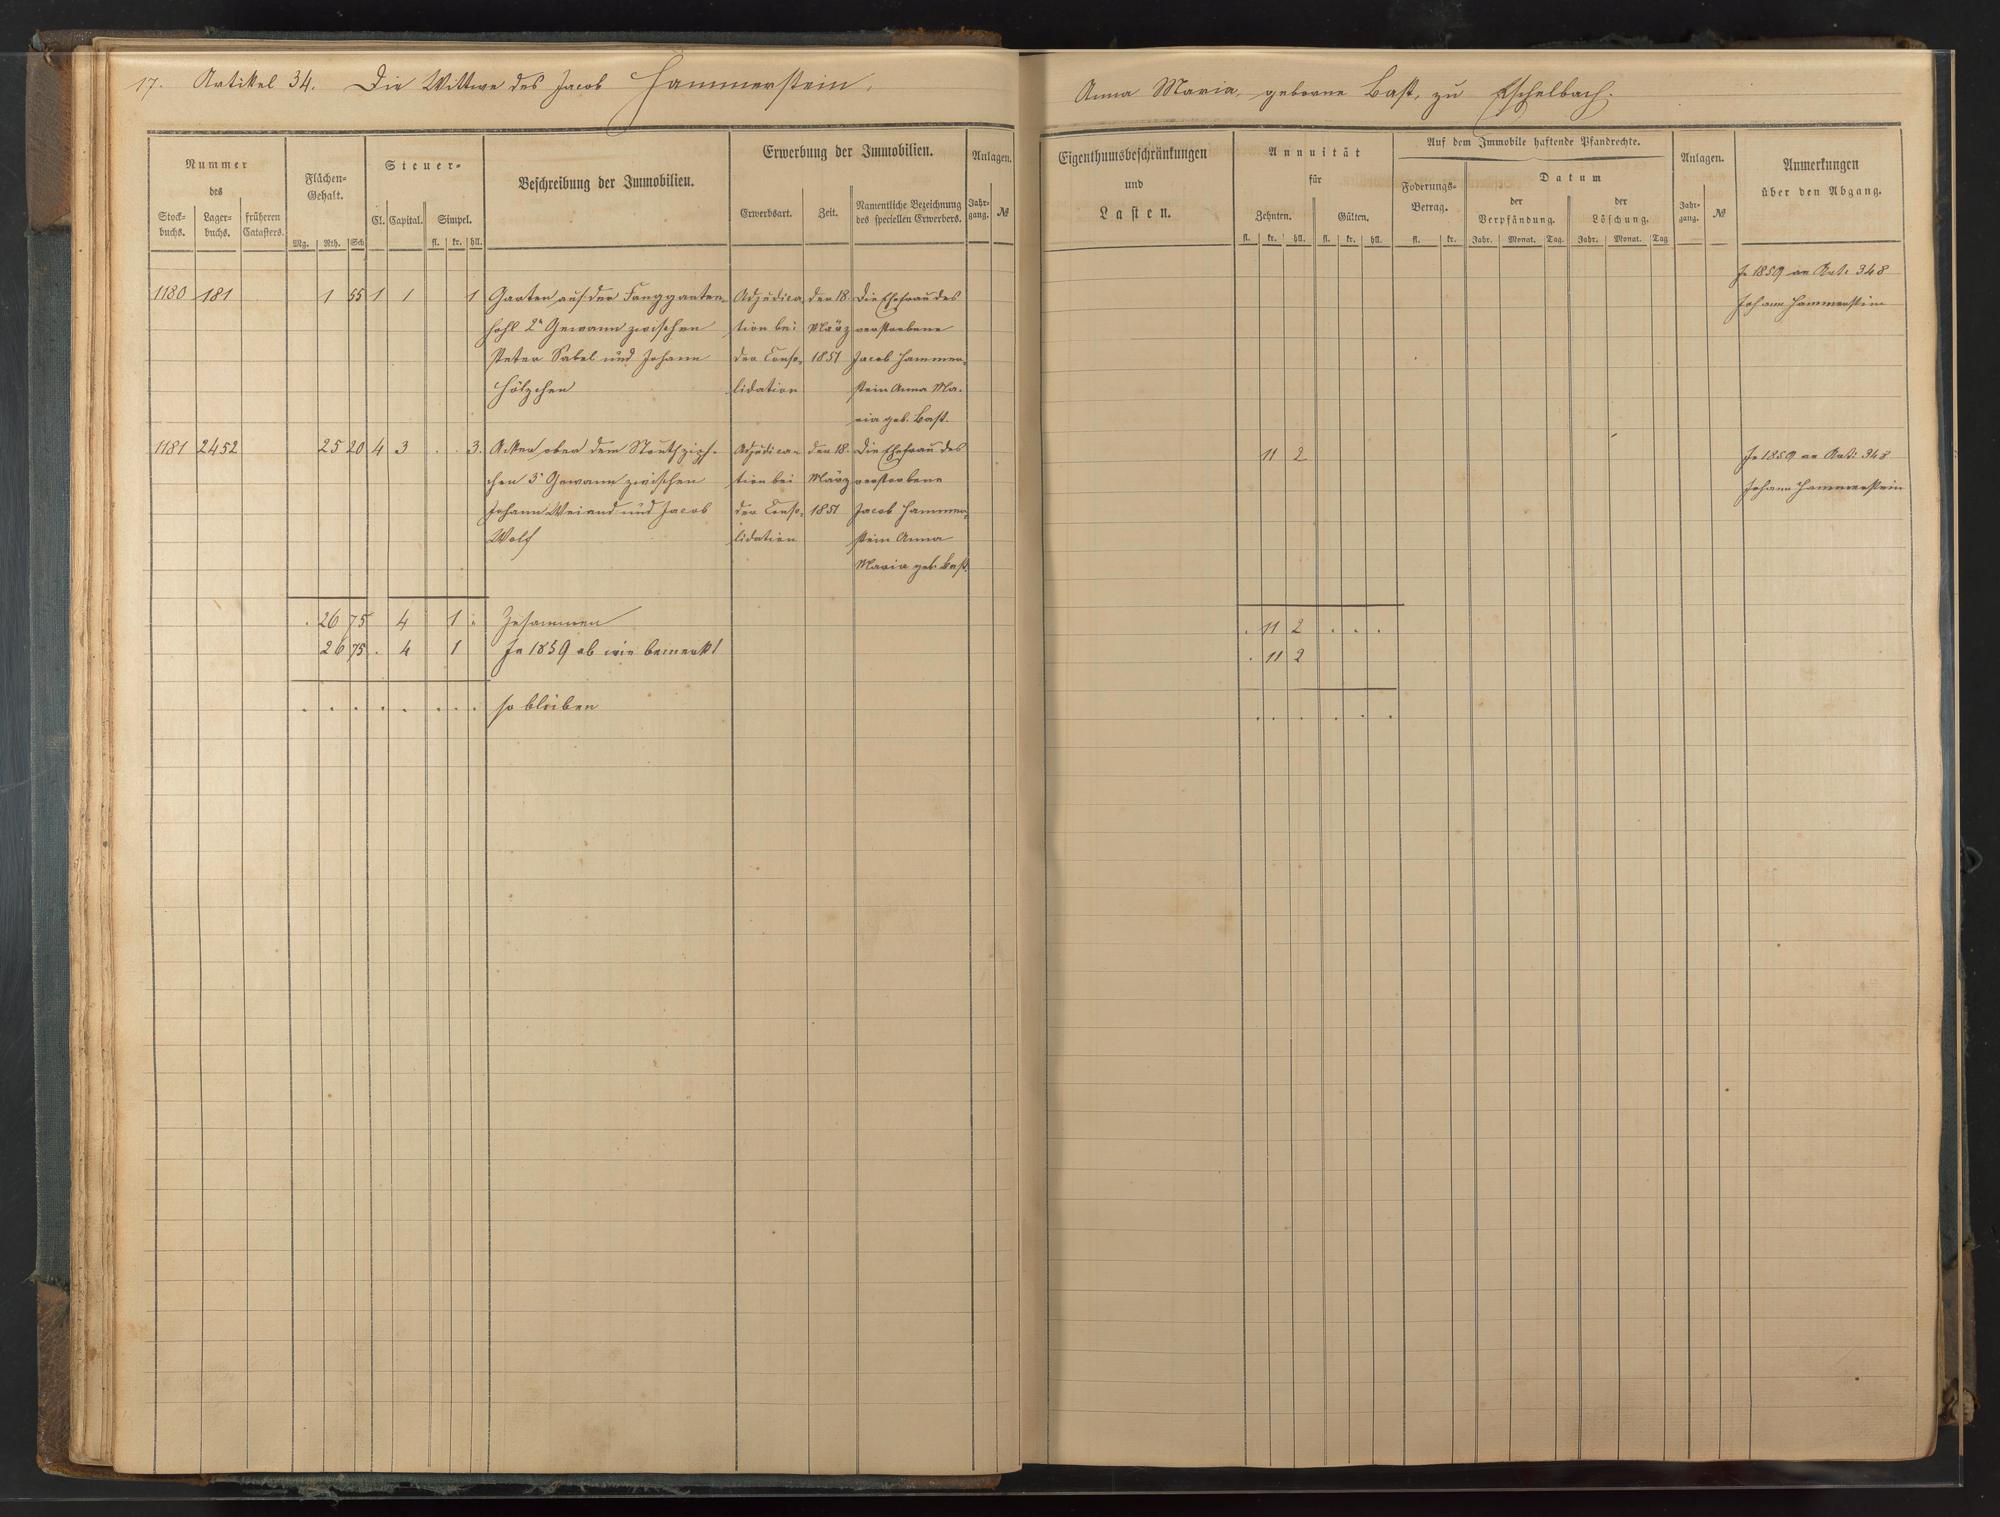 17. Artikel 34. Die Wittwe des Jacob Hammerstein, Anna Maria, geborne Bast, zu Eschelbach.
Nummer
des
Stock-
buchs.
Lager-
buchs.
früheren
Catasters.
Flächen-
Gehalt.
Mg. Rth. Sch
Steuer-
Cl. Capital. Simpel.
fl. kr. hll.
Beschreibung der Immobilien.
Erwerbung der Immobilien.
Erwerbsart. Zeit.
Namentliche Bezeichnung
des speciellen Erwerbers.
Anlagen.
Jahr-
gang.
№
1180 181 1 55 1 1 1 Garten auf der
hohl 2r Gewann zwischen
Peter Sabel und Johann
Hölzchen
Adjudica-
tion bei
der Conso-
lidation
den 18.
März
1851
Die Ehefrau des
verstorbene
Jacob Hammer-
stein Anna Ma-
ria geb. Bast.
1181 2452 25 20 4 3 . . 3. Acker ober dem
chen 3r Gewann zwischen
Johann Weiand und Jacob
Wolf
Adjudica-
tion bei
der Conso-
lidation
den 18.
März
1851
Die Ehefrau des
verstorbene
Jacob Hammer-
stein Anna
Maria geb. Bast
. 26 75 4 1 . Zusammen
26 75 . 4 1 In 1859 ab wie bemerkt
. . . . . . . . so bleiben
Eigenthumsbeschränkungen
und
Lasten.
Annuität
für
Zehnten. Gülten.
fl. kr. hll. fl. kr. hll.
Auf dem Immobile haftende Pfandrechte.
Foderungs-
Betrag.
fl. kr.
Datum
der
Verpfändung.
Jahr. Monat. Tag.
der
Löschung.
Jahr. Monat. Tag
Anlagen.
Jahr-
gang.
№
Anmerkungen
über den Abgang.
In 1859 an Art: 348
Johann Hammerstein
11 2
In 1859 an Art: 348
Johann Hammerstein
. 11 2 . . .
. 11 2
. . . . . .